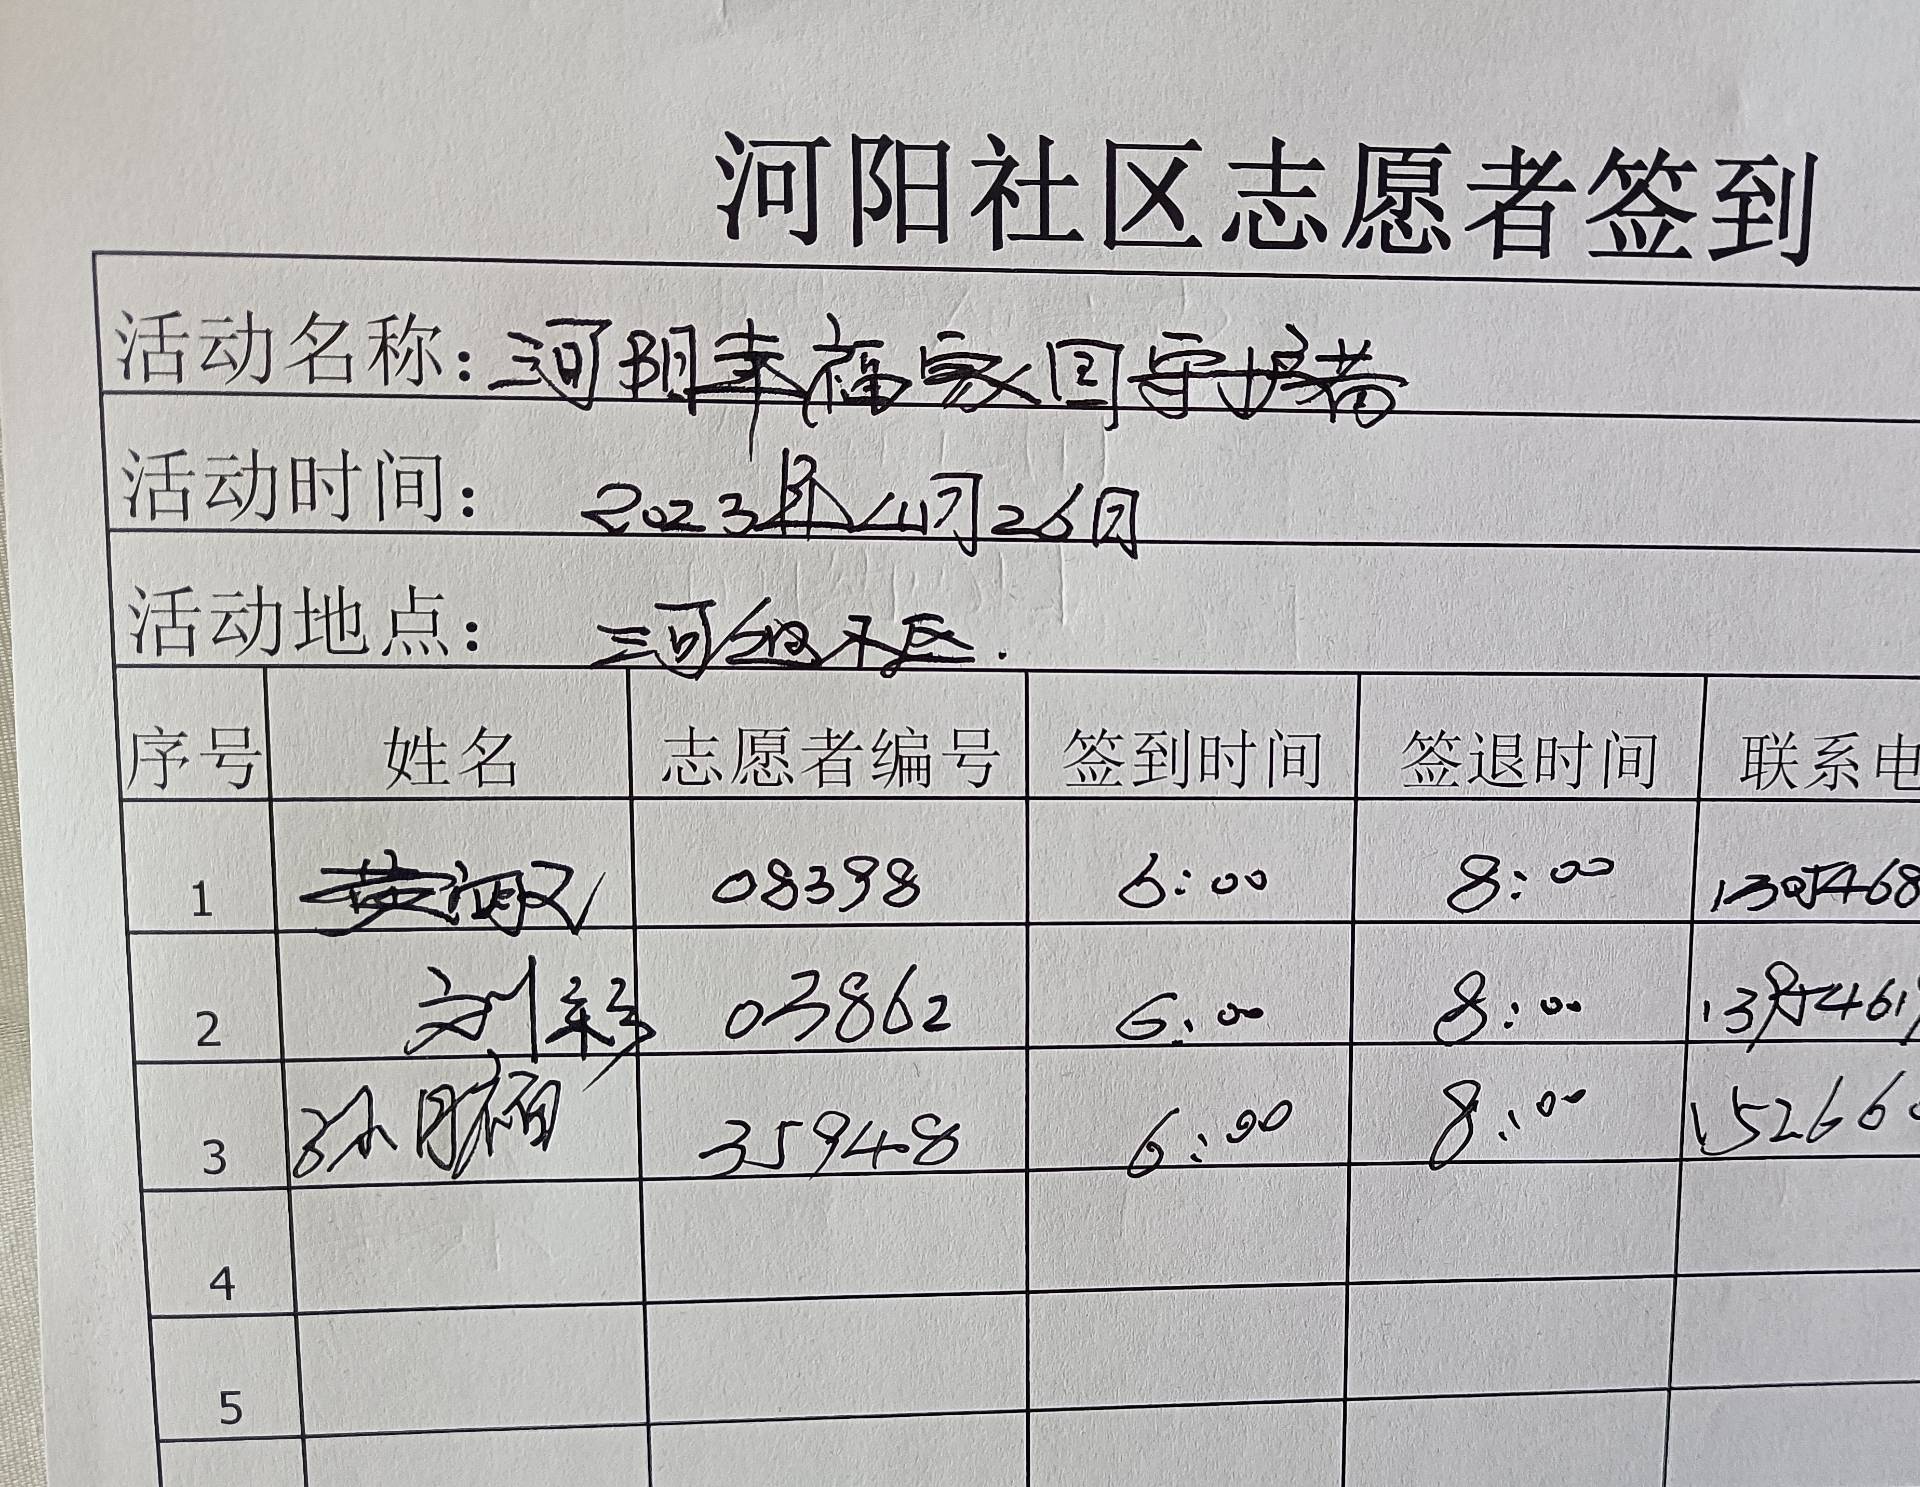 河阳社区志愿者签到
活动名称：河阳幸福家园守护者
活动时间：2023年11月26日
活动地点：河
序号 姓名 志愿者编号 签到时间 签退时间 联系电
1 08398 6:00 8:00
2 刘彩 03862 6:00 8:00
3 孙 35948 6:00 8:00 15266
4
5